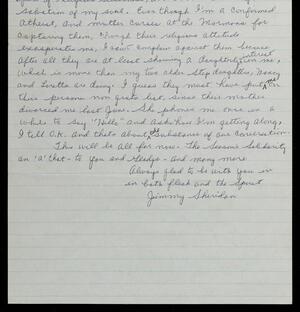 Salvation of my soul. Even though I'm a confirmed
Atheist, and mutter curses at the Mormons for
Capturing them, & Though their religious attitude
exasperates me, I can't complain against them because
After all they are at least showing a daughterly interest in me,
Which is more than my two older Step daughters, Nancy
and Loretta are doing. I guess they must have put me on
their persona non grata list, since their mother
divorced me last June. She phones me once in a
while to say "Hello" and Asks how I'm getting along,
I tell O.K. and thats about the Substance of our Conversation.
This will be All for now. The Seasons Solidarity
an 'a' that - to you and Gladys - And many more
Always glad to be with you in
in both flesh and the Spirit
Jimmy Sheridan